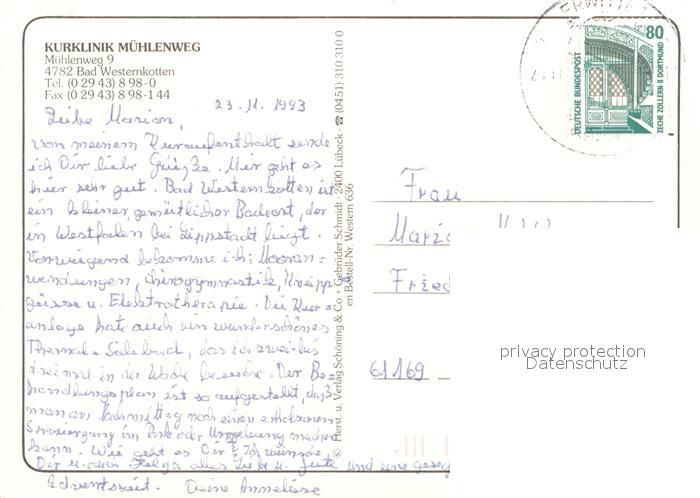 KURKLINIK MÜHLENWEG
Mühlenweg 9
4782 Bad Westernkotten
Tel. (0 29 43) 8 98-0
Fax (0 29 43) 8 98-1 44
23.11.1993
Liebe Marion,
von meinem Kuraufenthalt sende
ich Dir liebe Grüße. Mir geht es
hier sehr gut. Bad Westernkotten ist
ein kleiner, gemütlicher Badeort, der
in Westfalen bei Lippstadt liegt.
Vorwiegend bekomme ich: Mooran=
wendungen, Chirogymnastik, Kneipp
güsse u. Elektrotherapie. Die Kur=
anlage hat auch ein wunderschönes
Thermal-Solebad, das ich zwei-bis
dreimal in der Woche besuche. Der Be=
handlungsplan ist so aufgestellt, daß
man am Nachmittag noch einen erholsamen
Spaziergang im Park oder Umgebung machen
kann. Wie geht es Dir? Ich wünsche
Dir u. Helga alles Liebe u. Gute und eine
Adventszeit. Deine Anneliese
© Herst. u. Verlag Schöning & Co + Gebrüder Schmidt · 2400 Lübeck ☎ (0451) 310 310 0
en Bestell-Nr. Western 636
ERWITTE
80
DEUTSCHE BUNDESPOST
ZECHE ZOLLERN II DORTMUND
Frau
Mario
Fried
61169
privacy protection
Datenschutz